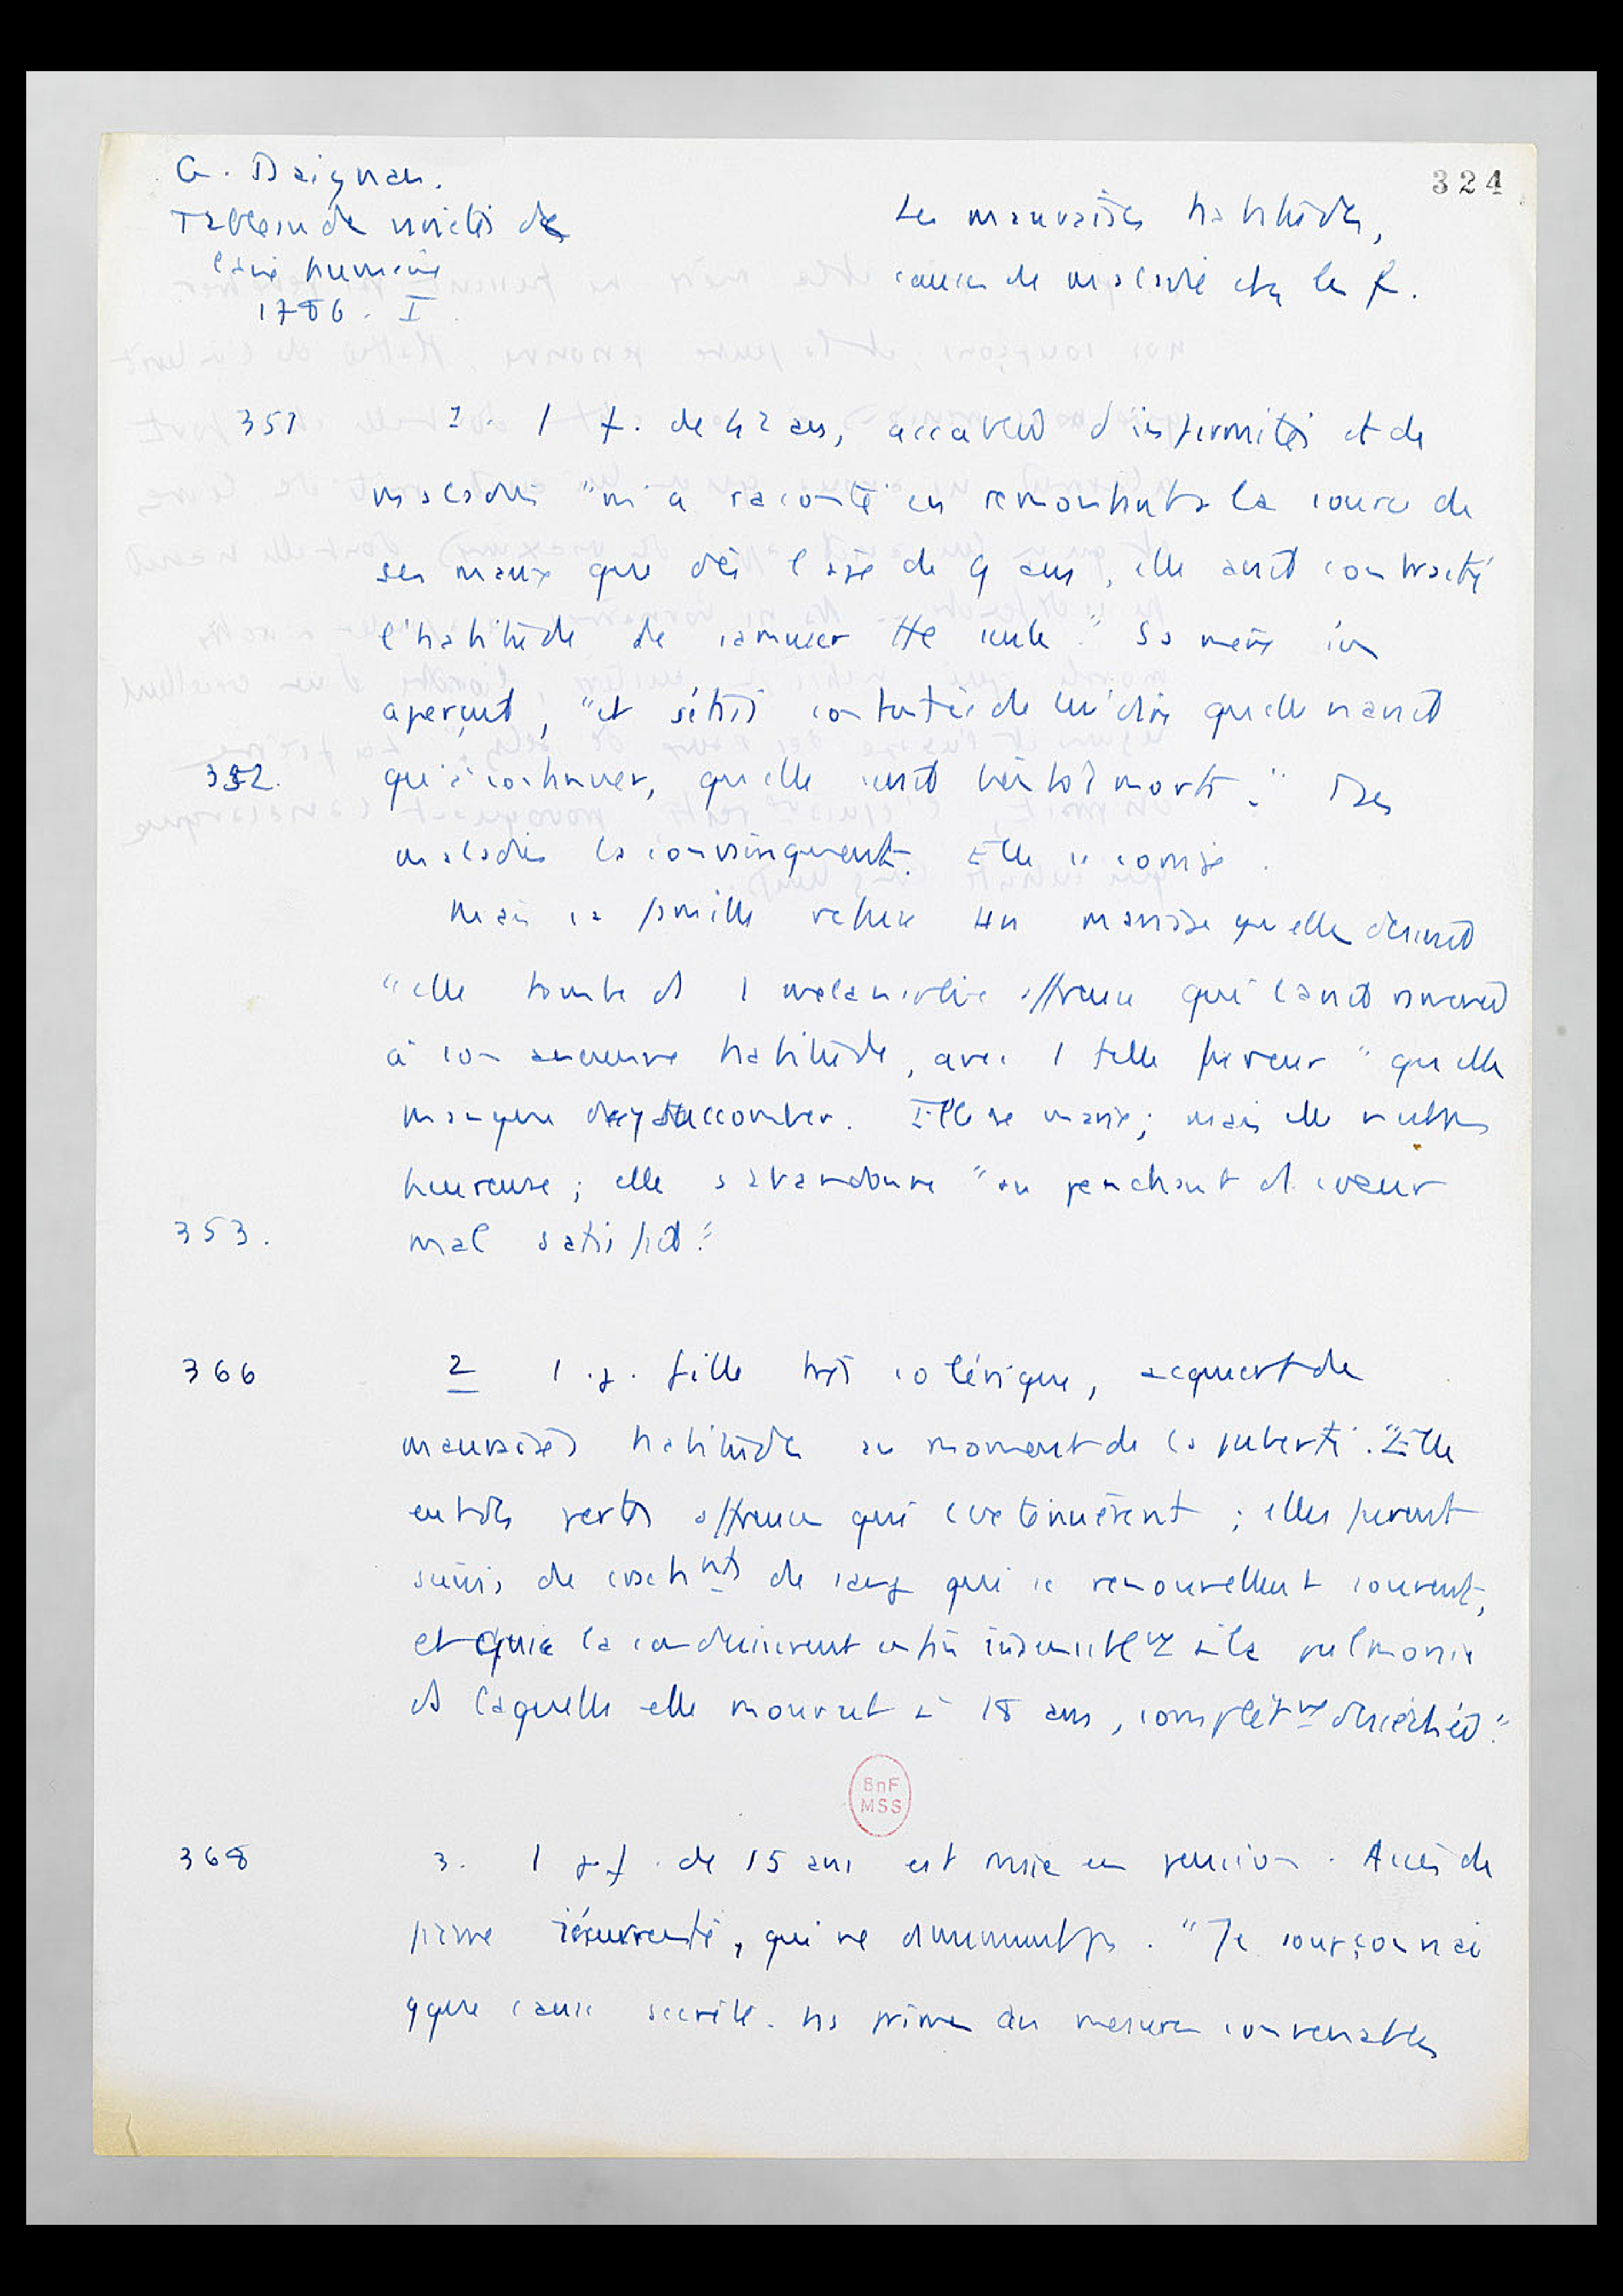 G. Daignan.
324
Tableau de variétés de
la vie humaine
1786. I
Les mauvaises habitudes,
causes de maladie chez les f.
351 1. 1 f. de 42 ans, accablée d'infirmités et de
maladies "m'a raconté en remontant à la source de
ses maux que dès l'âge de 9 ans, elle avait contracté
l'habitude de s'amuser tte seule." Sa mère s'en
aperçut, "et s'était contentée de lui dire qu'elle n'avait
352. qu'à continuer, qu'elle serait bientôt morte." Des
maladies la convainquirent. Elle se corrige.
Mais sa famille refuse un mariage qu'elle désirait
"elle tombe ds 1 mélancolie affreuse qui l'avait ramenée
à son ancienne habitude, avec 1 telle fureur" qu'elle
manque d'y succomber. Elle se marie; mais elle n'est pas
heureuse; elle s'abandonne "au penchant ds coeur
353. mal satisfait."
366 2 1 j. fille très colérique, acquiert de
mauvaises habitudes au moment de la puberté. "Elle
eut des pertes affreuses qui l'exténuèrent; elles furent
suivis de crachnts de sang qui se renouvellent souvent,
et qui la conduisirent enfin insensiblnt à la pulmonie
ds laquelle elle mourut à 18 ans, complètnt desséchée."
BnF
MSS
368 3. 1 j. f. de 15 ans est mise en pension. Accès de
fièvre qui ne diminuent pas. "Je soupçonnai
qque cause secrète. ns prîmes des mesures convenables